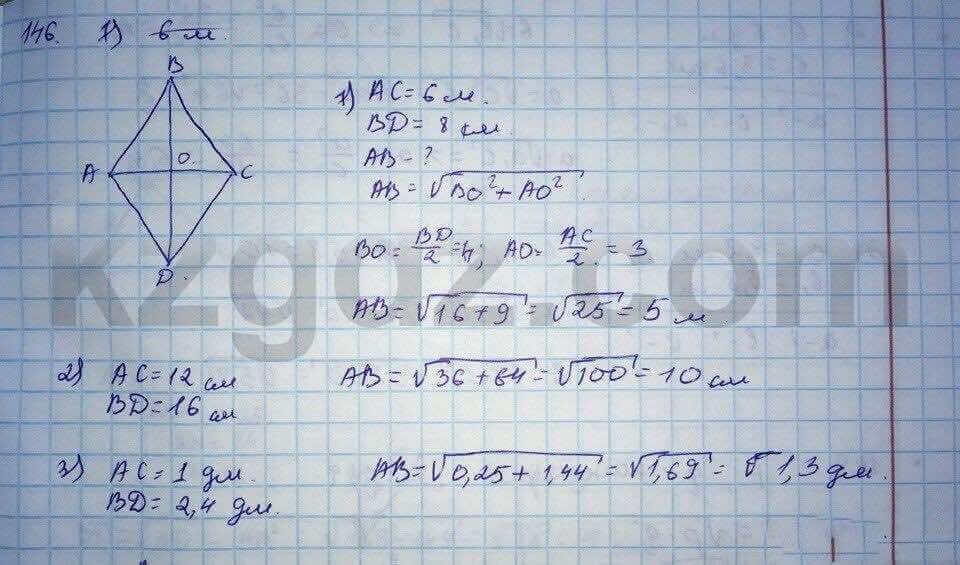 146. 1) 6 м.
B
A
O.
C
D.
1) AC = 6 м.
BD = 8 см
AB - ?
AB = √BO² + AO²
BO = BD/2 = 4; AO = AC/2 = 3
AB = √16 + 9 = √25 = 5 м
2) AC = 12 см
BD = 16 см
AB = √36 + 64 = √100 = 10 см
3) AC = 1 дм.
BD = 2,4 дм.
AB = √0,25 + 1,44 = √1,69 = √ 1,3 дм.
kzgdz.com